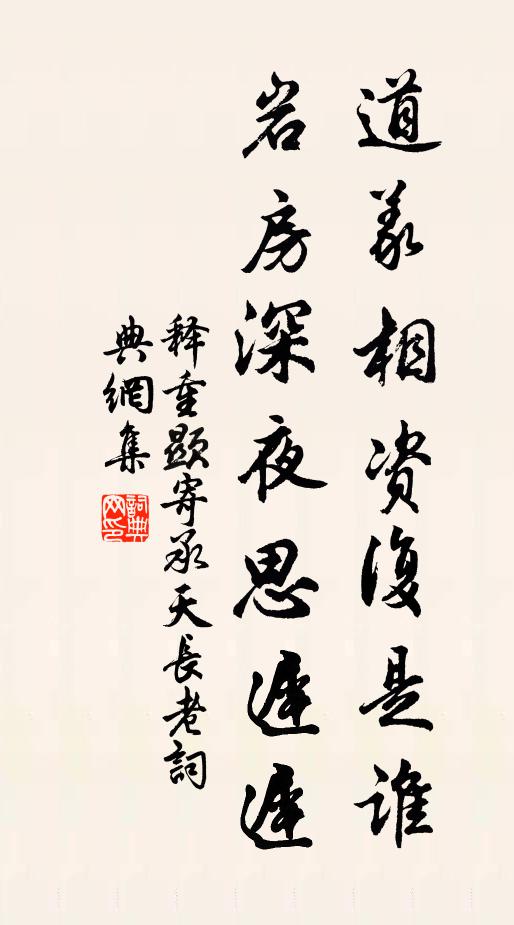 道義相资復是谁
岩房深夜思遲遲
释重顯寄承天長老詞
典網集
詞典網印